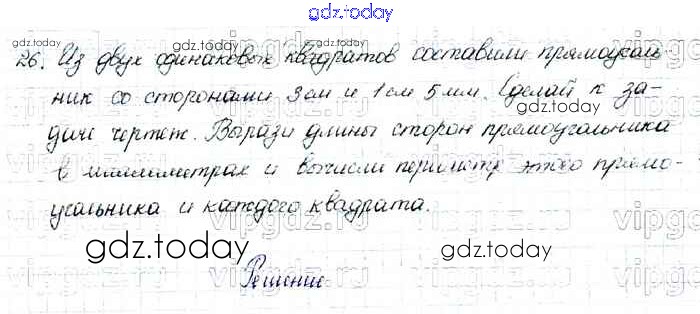 gdz.today
gdz.today
gdz.today
26. Из двух одинаковых квадратов составили прямоуголь-
ник со сторонами 3см и 1см 5мм. Сделай к за-
даче чертеж. Вырази длины сторон прямоугольника
в миллиметрах и вычисли периметр этого прямо-
угольника и каждого квадрата.
gdz.today
gdz.today
Решение